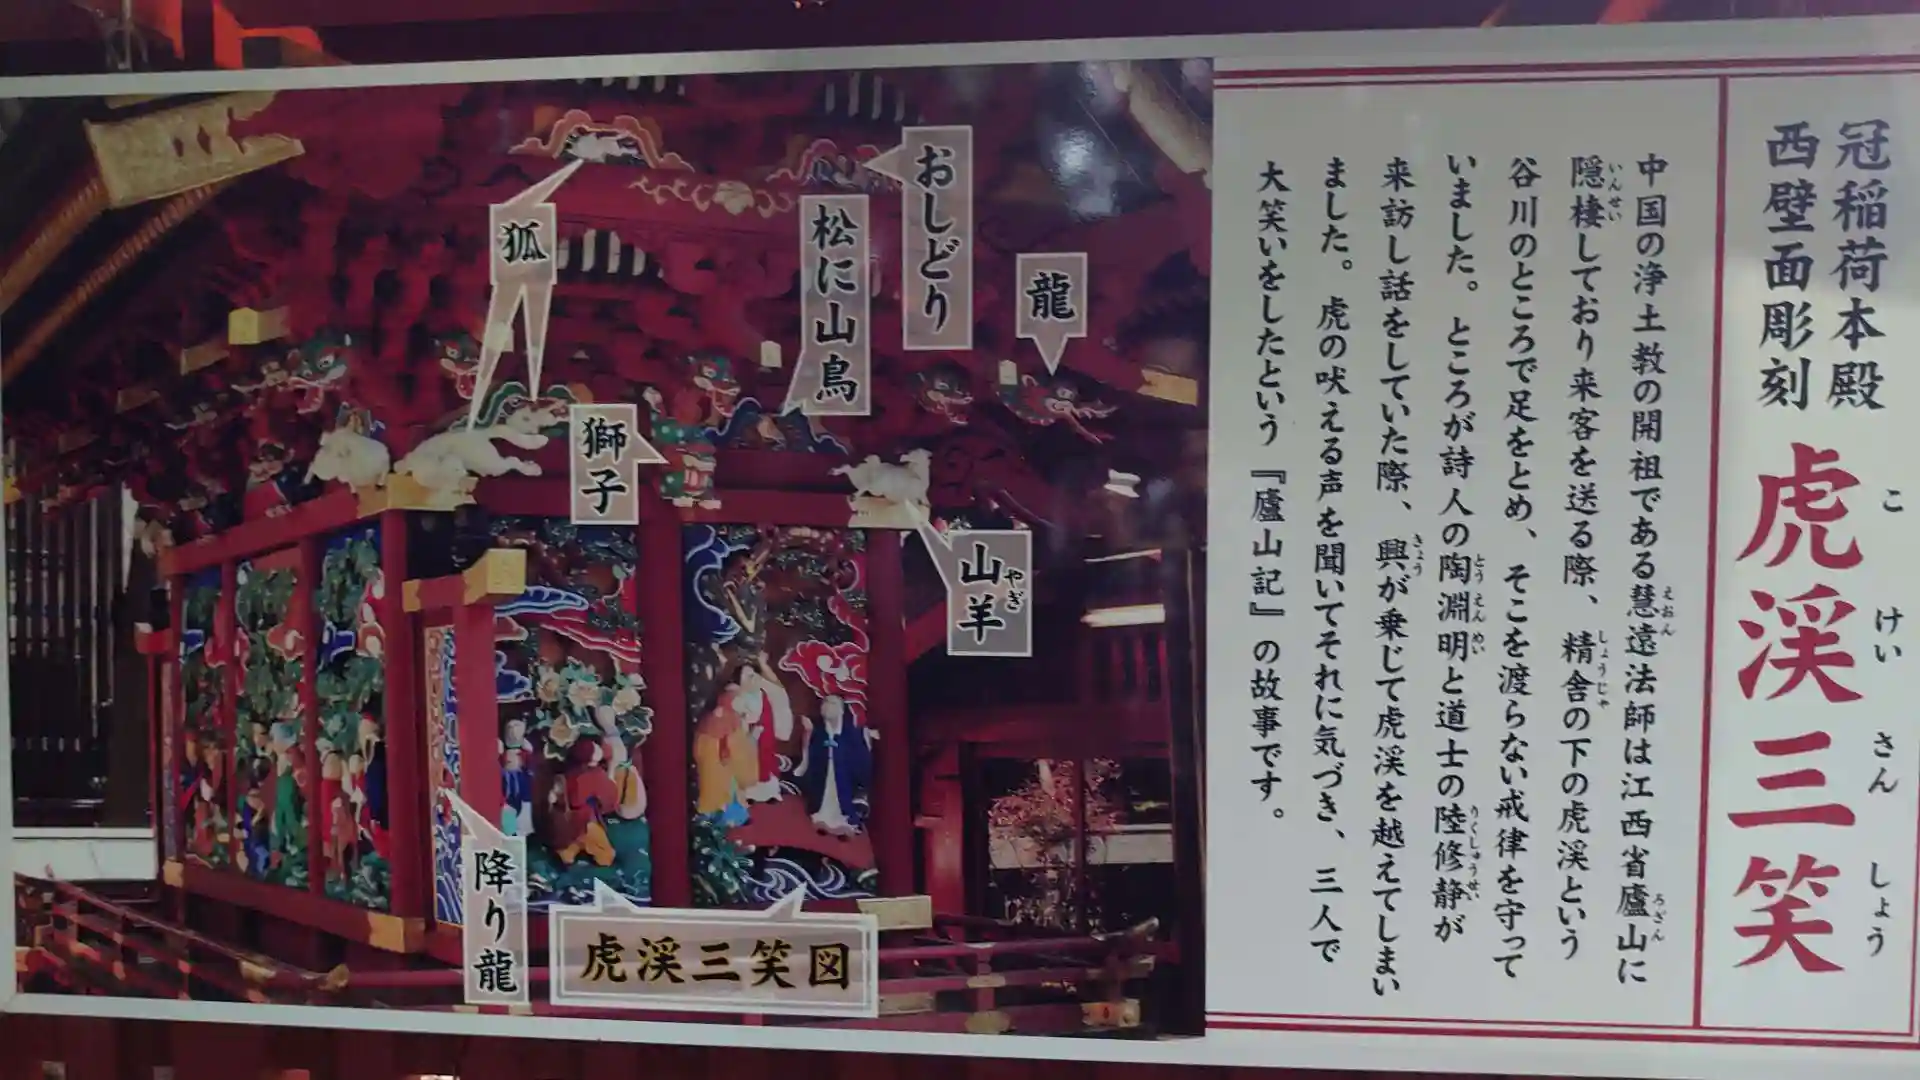 冠稲荷本殿
西壁面彫刻
虎渓三笑
こけいさんしょう
中国の浄土教の開祖である慧遠法師は江西省廬山に
えおん
ろざん
隠棲しており来客を送る際、精舎の下の虎渓という
いんせい
しょうじゃ
谷川のところで足をとめ、そこを渡らない戒律を守って
いました。ところが詩人の陶淵明と道士の陸修静が
とうえんめい
りくしゅうせい
来訪し話をしていた際、興が乗じて虎渓を越えてしまい
きょう
ました。虎の吠える声を聞いてそれに気づき、三人で
大笑いをしたという『廬山記』の故事です。
おしどり
松に山鳥
龍
狐
獅子
山羊
やぎ
降り龍
虎渓三笑図